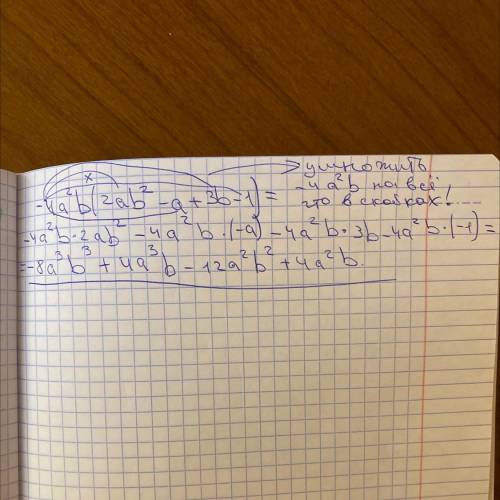 умножить
-4a²b(2ab² - a + 3b - 1) = -4a²b на всё
что в скобках!
-4a²b·2ab² - 4a²b·(-a) - 4a²b·3b - 4a²b·(-1) =
= -8a³b³ + 4a³b - 12a²b² + 4a²b.